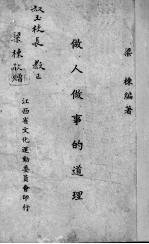 梁棟編著
做人做事的道理
江西省文化運動委員會印行
玉校長教正
梁棟敬贈